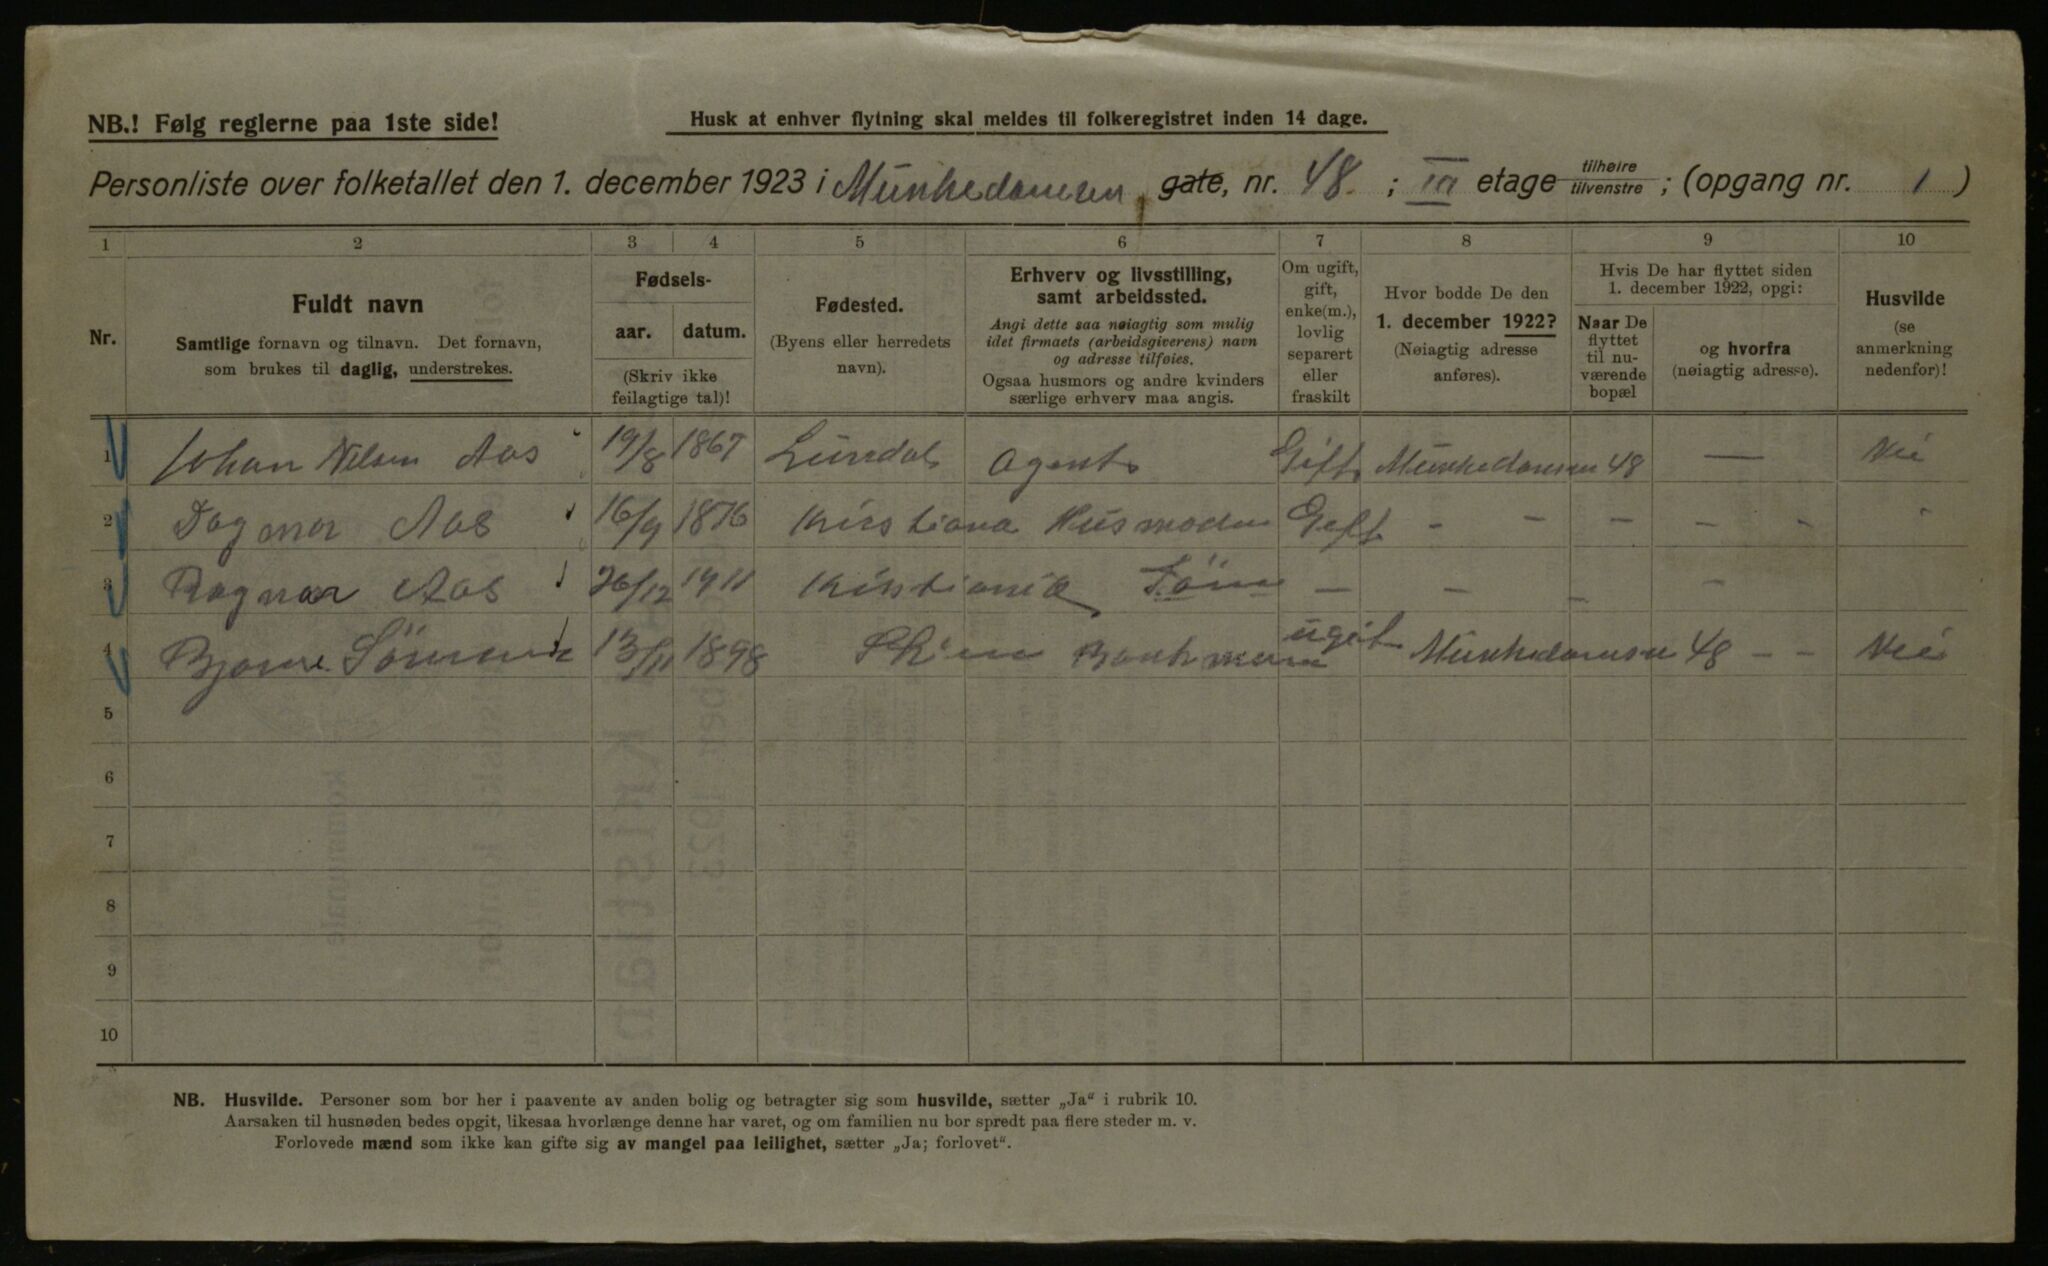 NB.! Følg reglerne paa 1ste side!
Husk at enhver flytning skal meldes til folkeregistret inden 14 dage.
Personliste over folketallet den 1. december 1923 i Munkedamsven gate, nr. 48. ; III etage tilhøire tilvenstre ; (opgang nr. 1 )
1 2 3 4 5 6 7 8 9 10
Nr.
Fuldt navn
Samtlige fornavn og tilnavn. Det fornavn,
som brukes til daglig, understrekes.
Fødsels-
aar. datum.
(Skriv ikke
feilagtige tal)!
Fødested.
(Byens eller herredets
navn).
Erhverv og livsstilling,
samt arbeidssted.
Angi dette saa nøiagtig som mulig
idet firmaets (arbeidsgiverens) navn
og adresse tilføies.
Ogsaa husmors og andre kvinders
særlige erhverv maa angis.
Om ugift,
gift,
enke(m.),
lovlig
separert
eller
fraskilt
Hvor bodde De den
1. december 1922?
(Nøiagtig adresse
anføres).
Hvis De har flyttet siden
1. december 1922, opgi:
Naar De
flyttet
til nu-
værende
bopæl
og hvorfra
(nøiagtig adresse).
Husvilde
(se
anmerkning
nedenfor)!
1 Johan Nilsen Aas 19/8 1867 Gift Munkedamsven 48 — Nei
2 Dagmar Aas 16/9 1876 Kristiana Husmoder Gift - - - - -
3 Ragnar Aas 26/12 1911 Kristiania Sönn - - - -
4 Bjarne 13/11 1898 Skien ugift Munkedamsven 48 - - Nei
5
6
7
8
9
10
NB. Husvilde. Personer som bor her i paavente av anden bolig og betragter sig som husvilde, sætter „Ja" i rubrik 10.
Aarsaken til husnøden bedes opgit, likesaa hvorlænge denne har varet, og om familien nu bor spredt paa flere steder m. v.
Forlovede mænd som ikke kan gifte sig av mangel paa leilighet, sætter „Ja; forlovet".